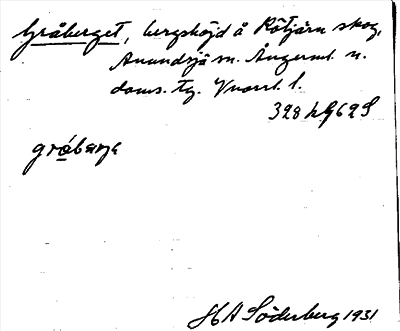 Gråberget, bergshöjd å Rötjärn skog,
Anundsjö sn. Ångerml. n.
doms. tg. Vnorrl. l.
328 h G 62 S
gråbærje
H A Söderberg 1931